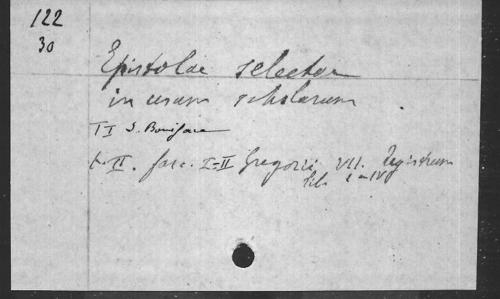 122
30
Epistolae selectae
in usum scholarum
T I S. Boniface
t. II. fasc. I-II Gregorii VII. Registrum
lib. I a IV